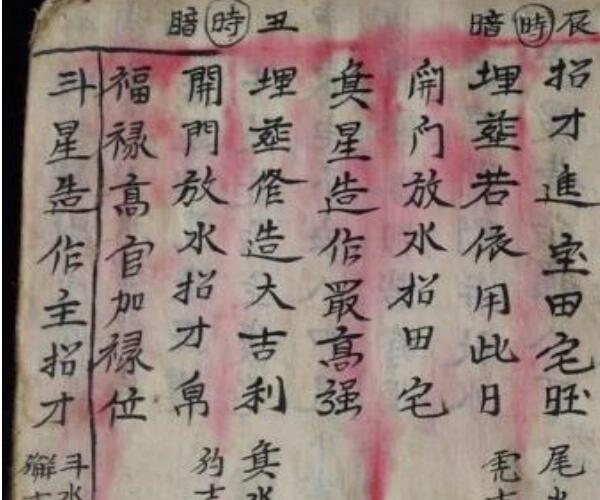 辰時暗
招才進宝田宅旺
尾
埋葬若依用此日
虎
開门放水招田宅
箕星造作最高强
丑時暗
埋葬修造大吉利
箕水
開門放水招才帛
豹吉
福禄高官加禄位
斗星造作主招才
斗水
獬